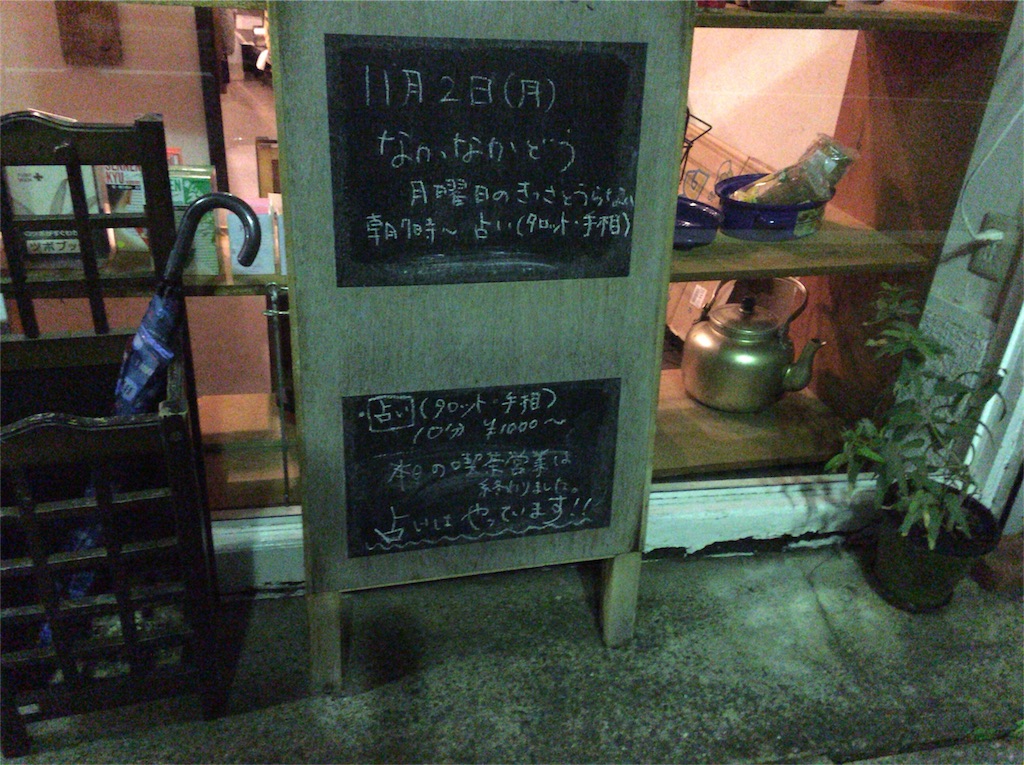 11月2日(月)
なかなかどう
月曜日のきっさとうらない
朝7時〜 占い(タロット・手相)
占い(タロット・手相)
10分 ¥1000〜
本日の喫茶営業は
終わりました。
占いはやっています!!
ツボブック